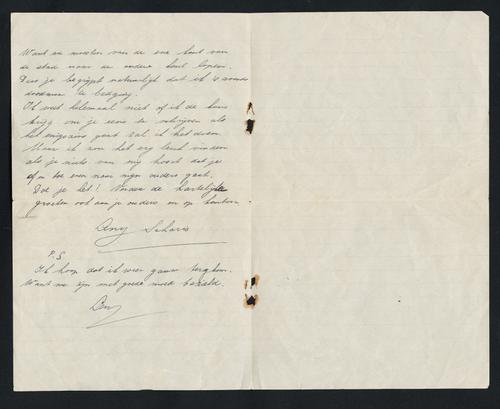 Want we moesten van de ene kant van
de stad naar de andere kant lopen.
Dus je begrijpt natuurlijk dat ik 's avonds
doodmoe te bed ging.
Ik weet helemaal niet of ik de kans
krijg om je eens te schrijven als
het enigszins gaat zal ik het doen.
Maar ik zou het erg leuk vinden
als je niets van mij hoort dat je
af en toe even naar mijn ouders gaat.
Doe je het! Nu de hartelijke
groeten ook aan je ouders en op
Leny
P.S.
Ik hoop dat ik weer gauw terug kom.
Want we zijn met goede moed bezield.
Leny